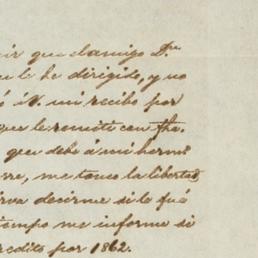 ir que el amigo D.n
le he dirigido, y no
ó á V. mi recibo por
que le remite con fha.
que debe á mi herm
re, me tomo la libertad
rva decirme si le fué
tiempo me informe si
redito por 1862.